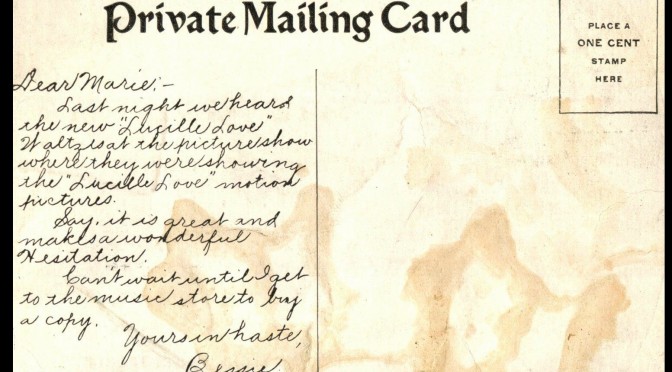 Private Mailing Card
PLACE A
ONE CENT
STAMP
HERE
Dear Marie:-
Last night we heard
the new "Lucille Love"
Waltzes at the picture show
where they were showing
the "Lucille Love" motion
pictures.
Say, it is great and
makes a wonderful
Hesitation.
Can't wait until I get
to the music store to buy
a copy.
Yours in haste,
Bessie